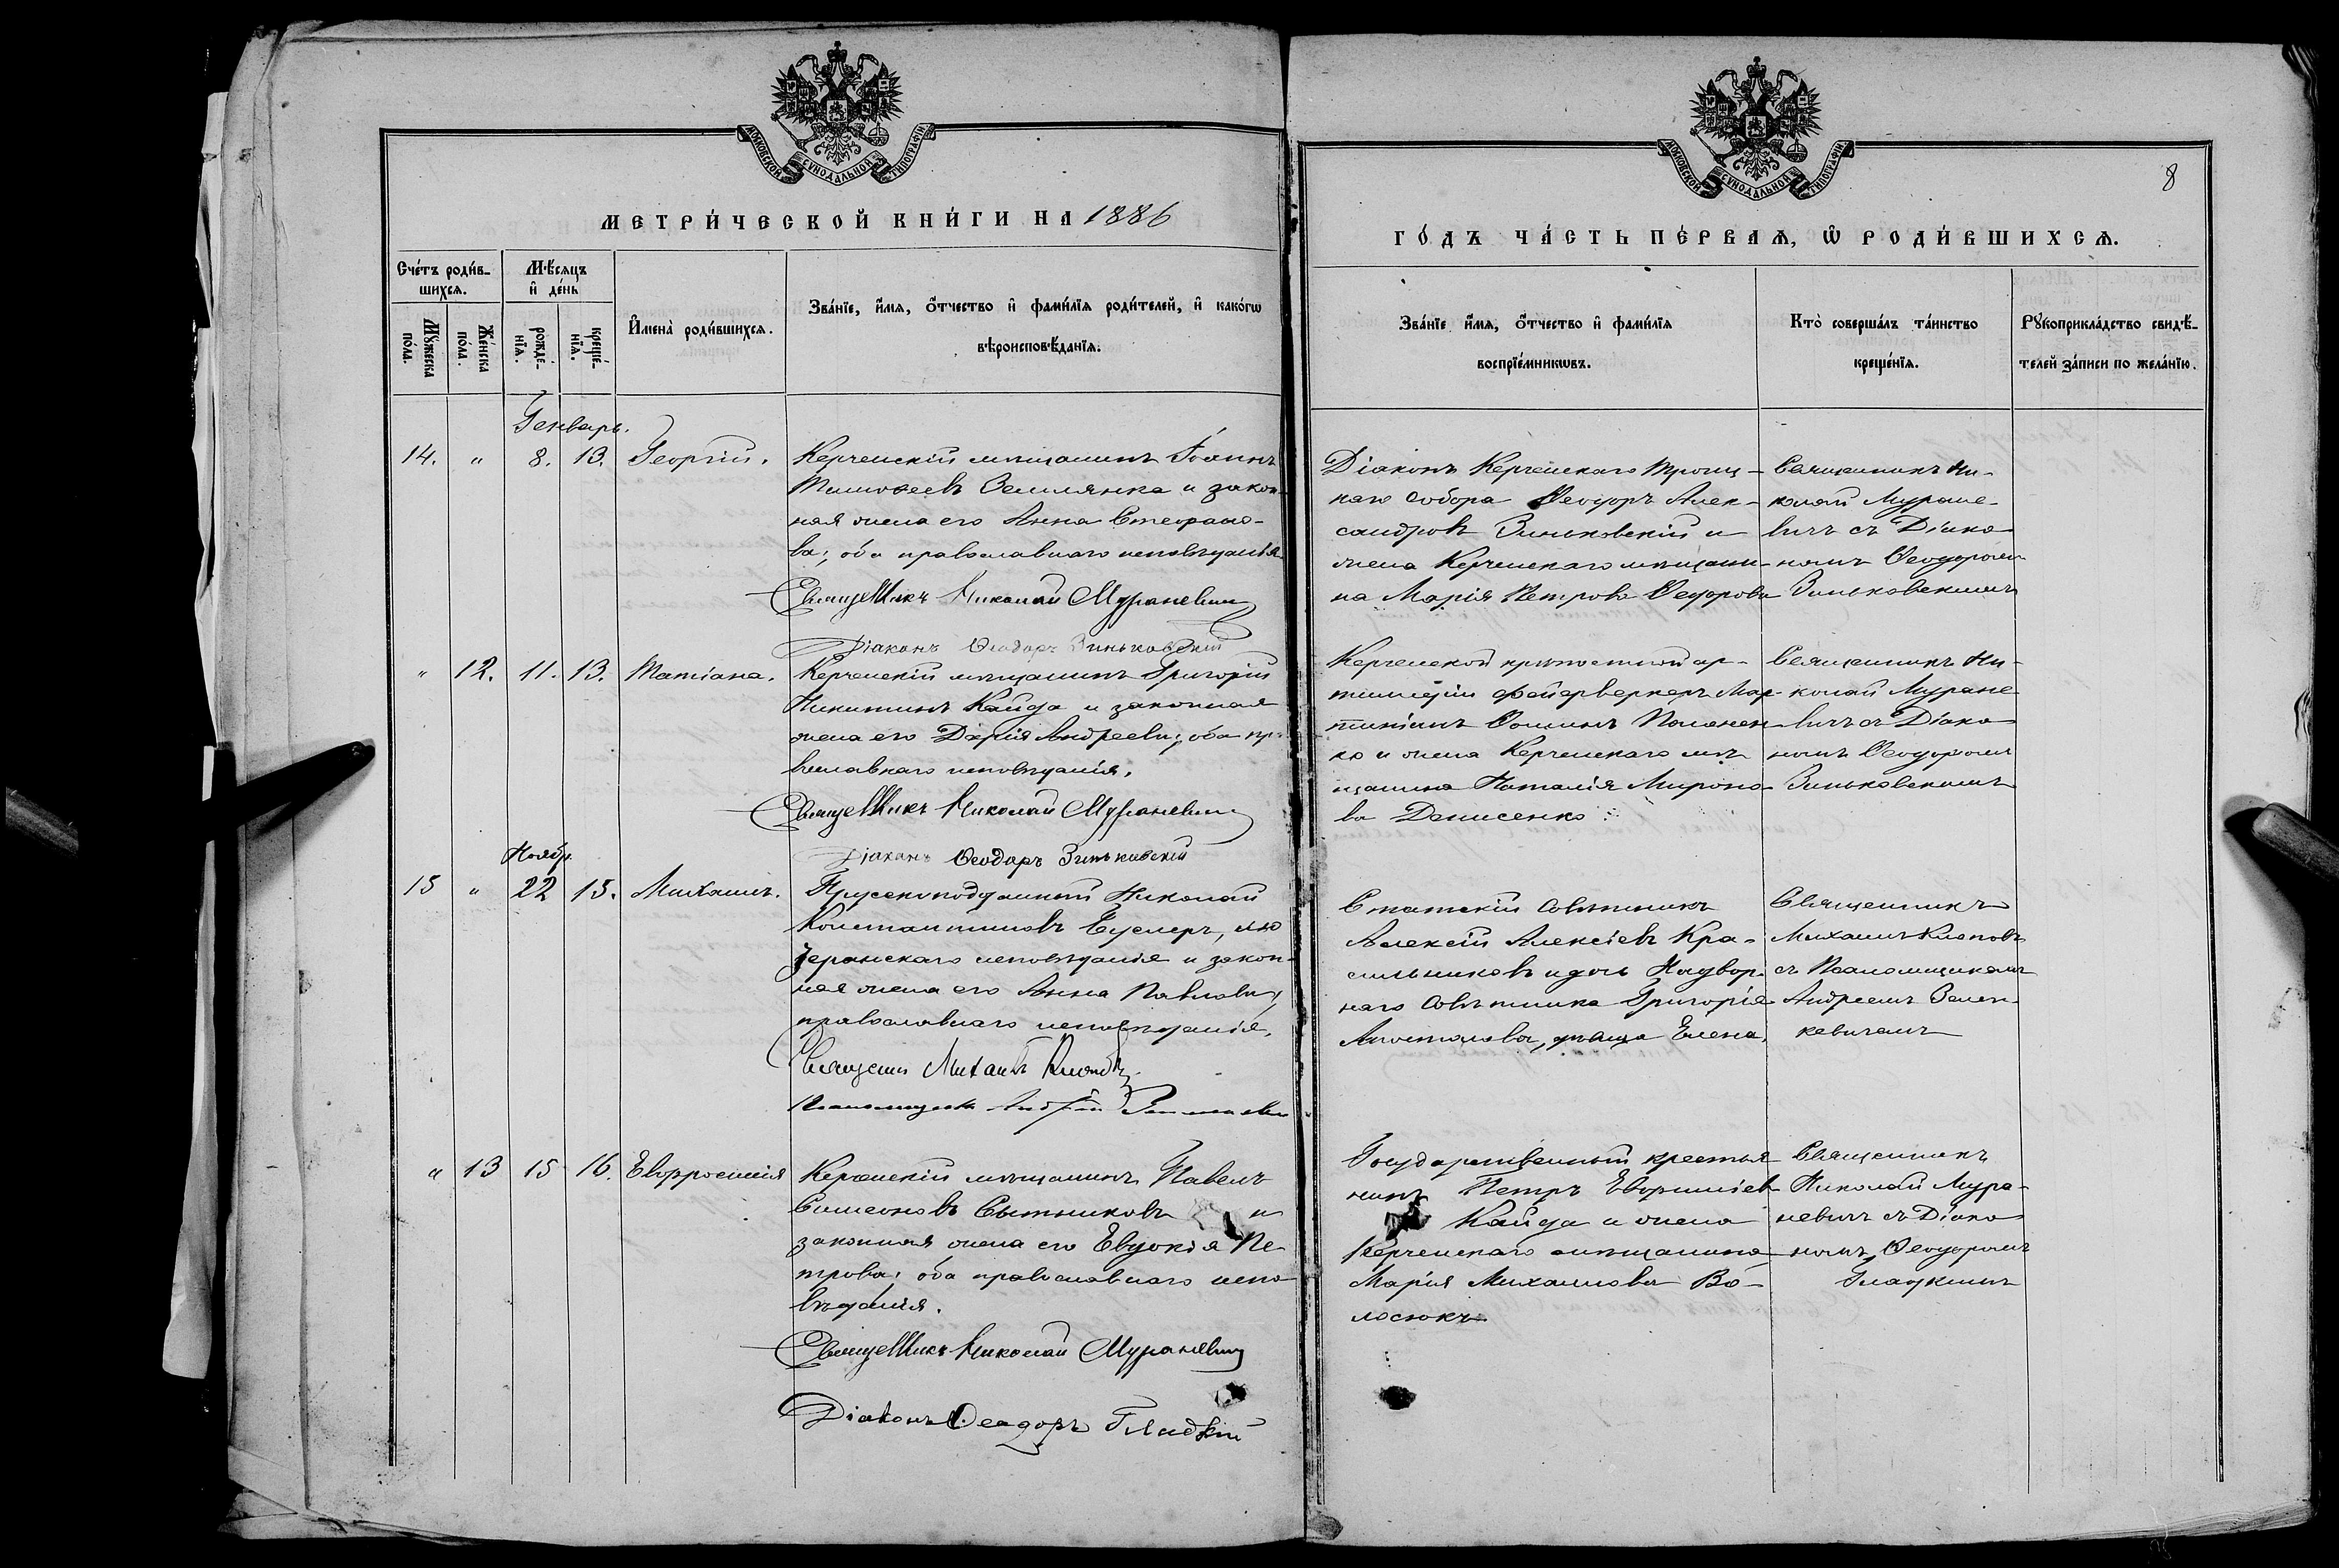 МОСКОВСКОЙ СУНОДАЛЬНОЙ ТИПОГРАФІИ
МЕТРИ́ЧЕСКОЙ КНИ́ГИ НА 1886
Сче́тъ роди́в-
шихся.
Мѣ́сяцъ
и҆ де́нь
Мꙋ́жеска
по́ла.
Же́нска
по́ла.
рожде́-
нїѧ.
креще́-
нїѧ.
И҆мена̀ роди́вшихсѧ.
Зва́нїе, и҆́мѧ, ѻ҆́тчество и҆ фами́лїѧ роди́телей, и҆ како́гѡ
вѣроисповѣ́данїѧ.
Генварь.
14. " 8. 13. Георгій. Керченскій мѣщанинъ Іоаннъ
Тимоѳеевъ Земляника и закон-
ная жена его Анна Стефано-
ва; оба православнаго исповѣданія
Священникъ Николай Мураневичъ
Діаконъ Ѳеодоръ Зиньковскій
" 12. 11. 13. Татіана. Керченскій мѣщанинъ Григорій
Никитинъ Кайда и законная
жена его Дарія Андреева; оба пра-
вославнаго исповѣданія.
Священникъ Николай Мураневичъ
Діаконъ Ѳеодоръ Зиньковскій
Ноябр.
15 " 22 15. Михаилъ. Прусскоподданный Николай
Константиновъ лю
теранскаго исповѣданія и закон-
ная жена его Анна Павлова,
православнаго исповѣданія.
Священ Михаилъ Клоповъ
Псаломщикъ Андрей
" 13 15 16. Евфросинія Керченскій мѣщанинъ Павелъ
Симеоновъ Сытниковъ и
законная жена его Евдокія Пе-
трова; оба православнаго испо-
вѣданія.
Священникъ Николай Мураневичъ
Діаконъ Ѳеодоръ Гладкій
МОСКОВСКОЙ СУНОДАЛЬНОЙ ТИПОГРАФІИ
8
ГО́ДЪ ЧА́СТЬ ПЕ́РВАѦ, Ѡ҆ РОДИ́ВШИХСѦ.
Зва́нїе и҆́мѧ, ѻ҆́тчество и҆ фами́лїѧ
воспрїе́мникѡвъ.
Кто̀ соверша́лъ та́инство
креще́нїѧ.
Рꙋкоприкла́дство свидѣ́-
телей за́писи по жела́нїю.
Діаконъ Керченскаго Троиц-
каго собора Ѳеодоръ Алек-
сандровъ Зиньковскій и
жена Керченскаго мѣщани-
на Марія Петрова Ѳедорова
Священникъ Ни-
колай Муране-
вичъ съ Діако-
номъ Ѳеодоромъ
Зиньковскимъ
Керченской крѣпостной ар-
тиллеріи фейерверкеръ Мар-
тиніанъ Ѳоминъ Полонен-
ко и жена Керченскаго мѣ-
щанина Наталія Мироно-
ва Денисенко
Священникъ Ни-
колай Муране-
вичъ съ Діако-
номъ Ѳеодоромъ
Зиньковскимъ
Статскій Совѣтникъ
Алексій Алексіевъ Кра-
сильниковъ и дочь Надвор-
наго Совѣтника Григорія
Апостолова, дѣвица Елена.
Священникъ
Михаилъ Клоповъ
съ Псаломщикомъ
Андреемъ Зелен-
кевичемъ
Государственный крестья-
нинъ Петръ Евфиміевъ
Кайда и жена
Керченскаго мѣщанина
Марія Михаилова Во-
лосюкъ
Священникъ
Николай Мура-
невичъ съ Діако-
номъ Ѳеодоромъ
Гладкимъ